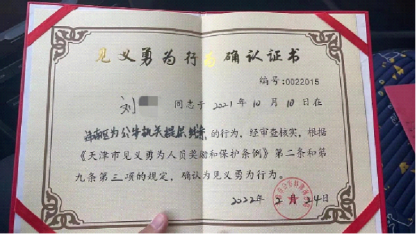 见义勇为行为确认证书
编号:0022015
刘 同志于2021年10月10日在
为公安机关提供线索的行为，经审查核实，根据
《天津市见义勇为人员奖励和保护条例》第二条和第
九条第三项的规定，确认为见义勇为行为。
2022年2月24日